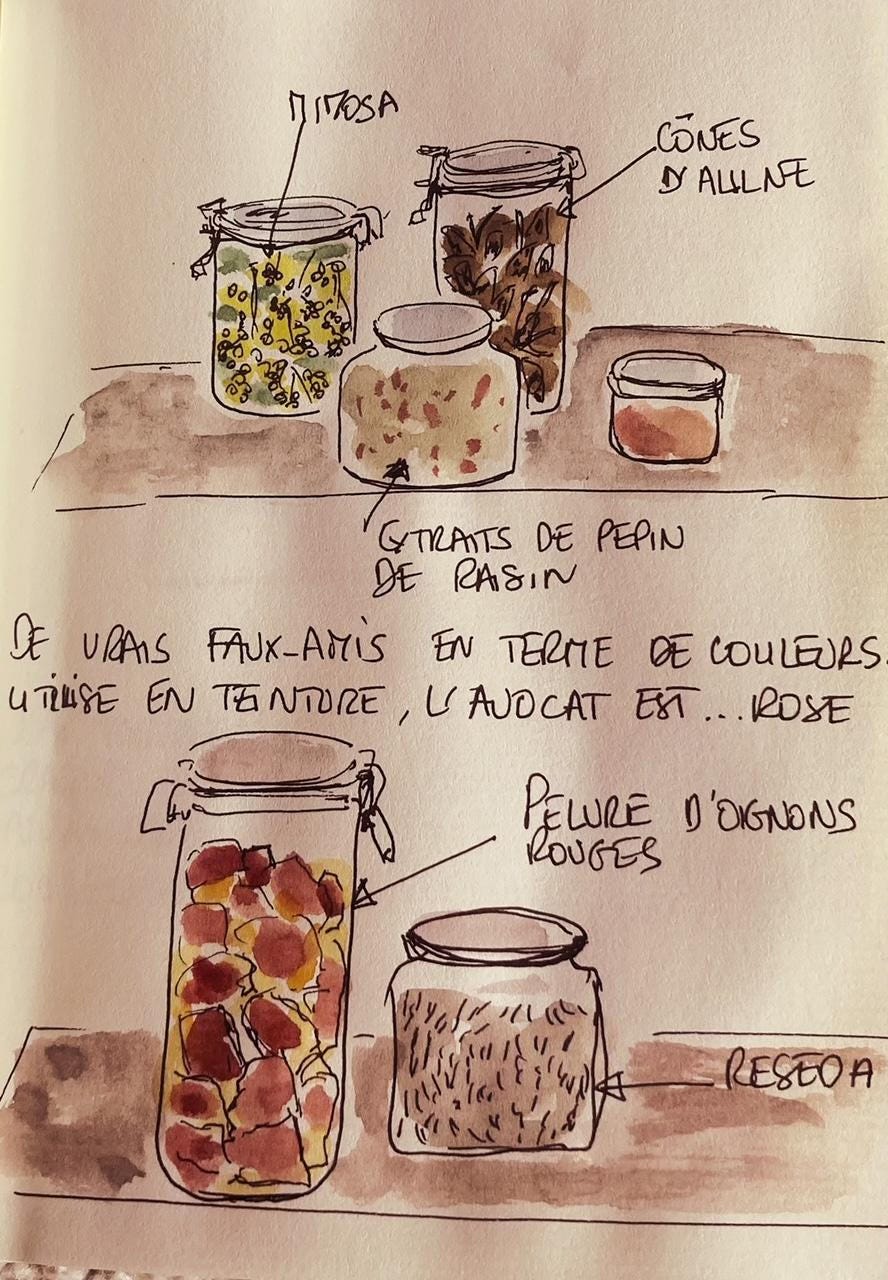 MIMOSA
CÔNES
D'AULNE
EXTRAITS DE PEPIN
DE RAISIN
DE VRAIS FAUX-AMIS EN TERME DE COULEURS.
UTILISE EN TEINTURE, L'AVOCAT EST...ROSE
PELURE D'OIGNONS
ROUGES
RESEDA